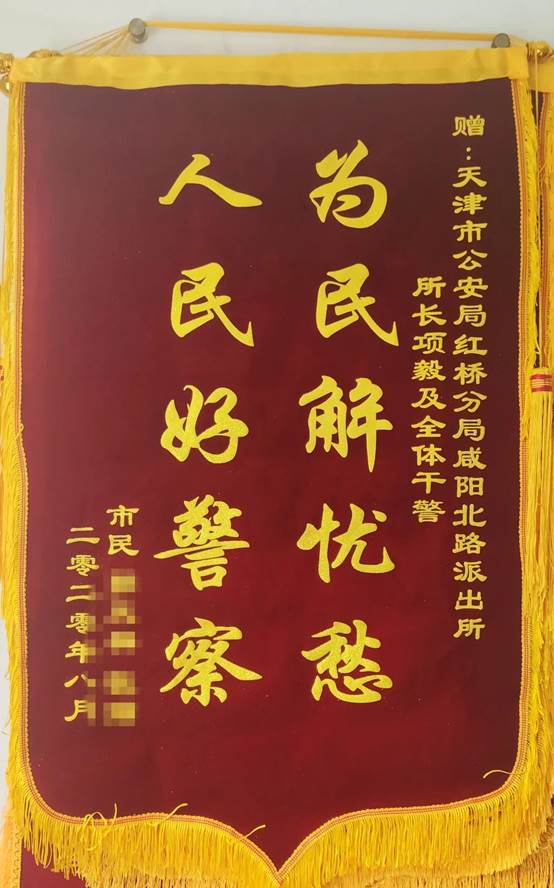 赠:天津市公安局红桥分局咸阳北路派出所
所长项毅及全体干警
为民解忧愁
人民好警察
市民
二零二零年八月